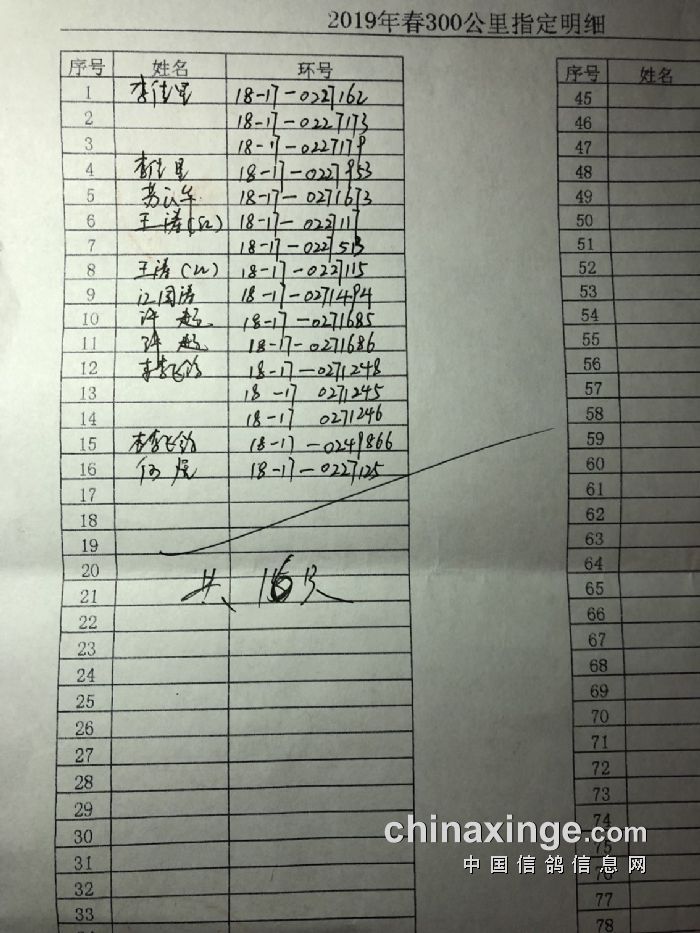 2019年春300公里指定明细
序号 姓名 环号 序号 姓名
1 李佳星 18-17-0227162 45
2 18-17-0227173 46
3 18-17-0227179 47
4 李佳星 18-17-0227953 48
5 18-17-0271673 49
6 王涛 18-17-0227117 50
7 18-17-0227513 51
8 王涛 18-17-0227115 52
9 江国涛 18-17-0271494 53
10 许 18-17-0271685 54
11 许 18-17-0271686 55
12 18-17-0271248 56
13 18-17 0271245 57
14 18-17 0271246 58
15 18-17-0249866 59
16 何 18-17-0227125 60
17 61
18 62
19 63
20 64
21 共16只 65
22 66
23 67
24 68
25 69
26 70
27 71
28 72
29 73
30 74
31 75
32 76
33 77
78
chinaxinge.com
中国信鸽信息网